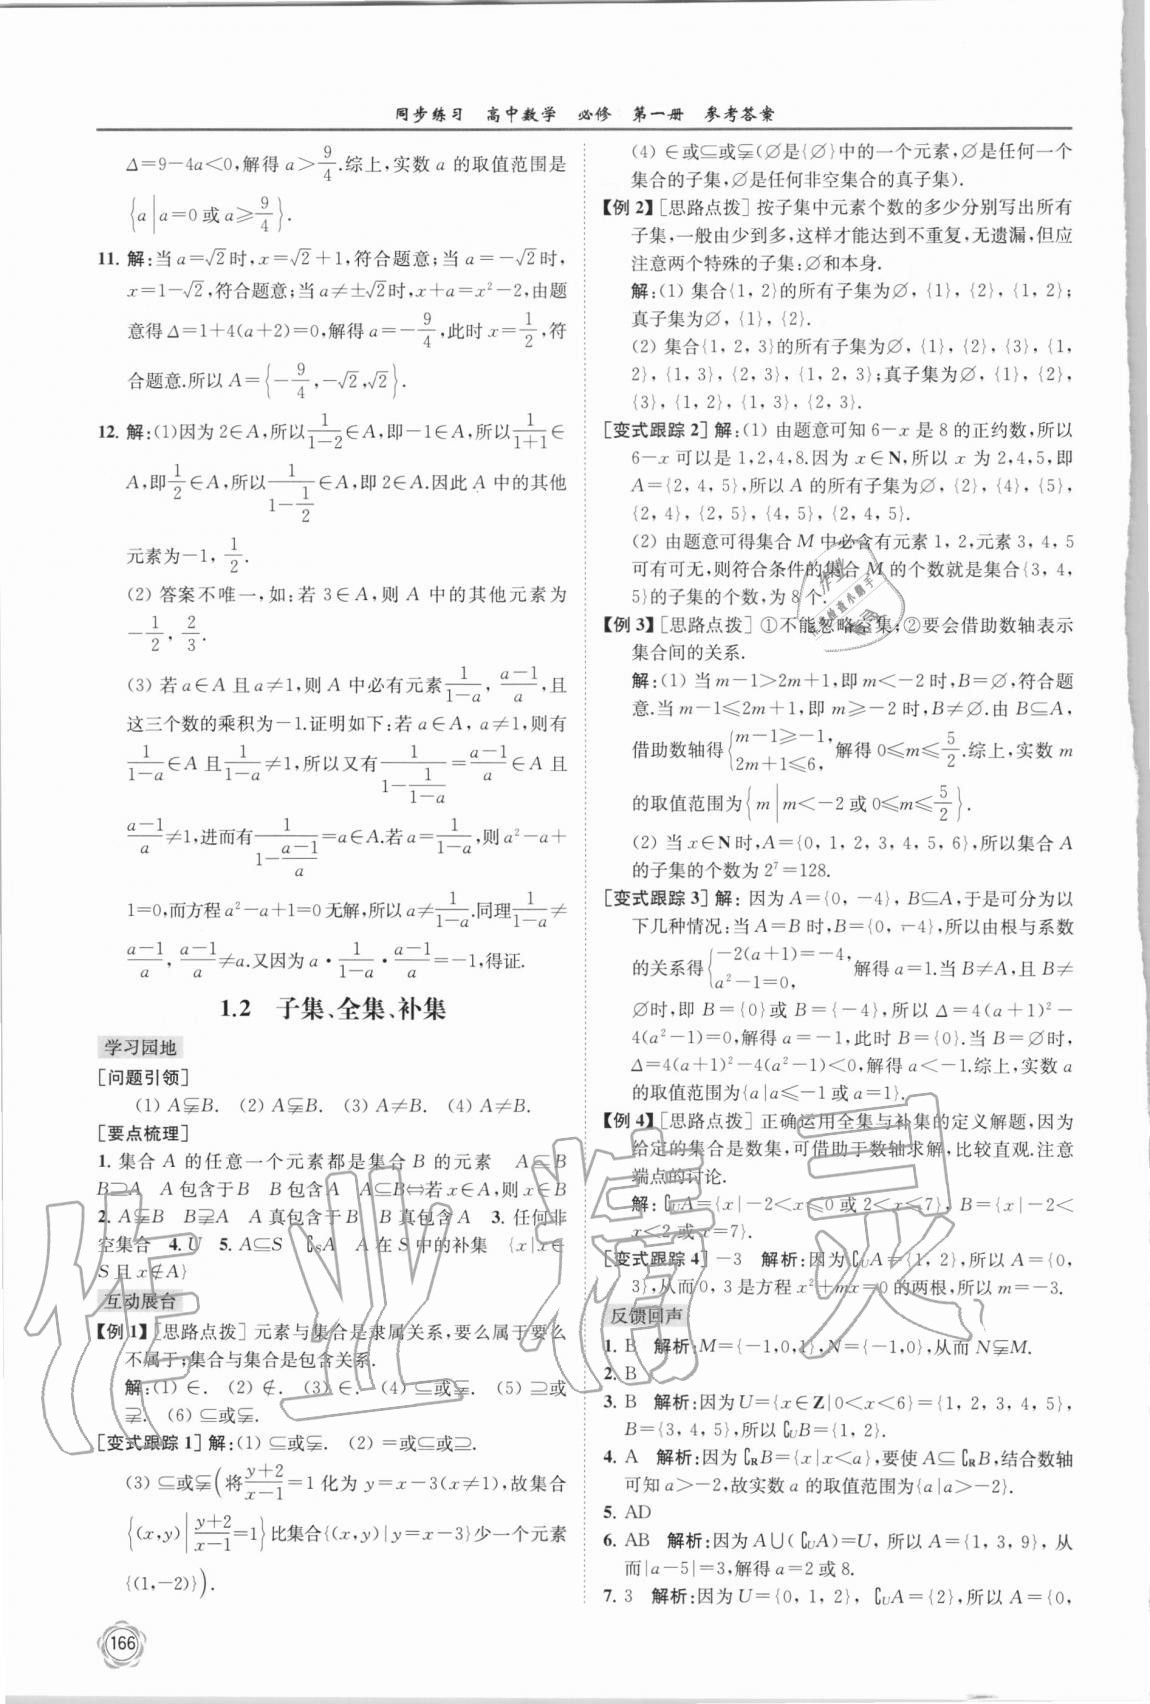 同步练习 高中数学 必修 第一册 参考答案
Δ=9-4a<0,解得 a>9/4.综上,实数 a 的取值范围是
{a|a=0 或 a⩾9/4}.
11. 解:当 a=√2时,x=√2+1,符合题意;当 a=-√2时,
x=1-√2,符合题意;当 a≠±√2时,x+a=x²-2,由题
意得 Δ=1+4(a+2)=0,解得 a=-9/4,此时 x=1/2,符
合题意.所以 A={-9/4,-√2,√2}.
12. 解:(1)因为 2∈A,所以1/(1-2)∈A,即-1∈A,所以1/(1+1)∈
A,即1/2∈A,所以1/(1-1/2)∈A,即 2∈A.因此 A 中的其他
元素为-1, 1/2.
(2) 答案不唯一,如:若 3∈A,则 A 中的其他元素为
-1/2, 2/3.
(3) 若 a∈A 且 a≠1,则 A 中必有元素1/(1-a), (a-1)/a,且
这三个数的乘积为-1.证明如下:若 a∈A, a≠1,则有
1/(1-a)∈A 且1/(1-a)≠1,所以又有1/(1-1/(1-a))=(a-1)/a∈A 且
(a-1)/a≠1,进而有1/(1-(a-1)/a)=a∈A.若 a=1/(1-a),则 a²-a+
1=0,而方程 a²-a+1=0 无解,所以 a≠1/(1-a).同理1/(1-a)≠
(a-1)/a, (a-1)/a≠a.又因为 a·1/(1-a)·(a-1)/a=-1,得证.
1.2 子集、全集、补集
学习园地
[问题引领]
(1) A⫋B. (2) A⫋B. (3) A≠B. (4) A≠B.
[要点梳理]
1. 集合 A 的任意一个元素都是集合 B 的元素 A⊆B
B⊇A A 包含于 B B 包含 A A⊆B⇔若 x∈A,则 x∈B
2. A⫋B B⫌A A 真包含于 B B 真包含 A 3. 任何非
空集合 4. U 5. A⊆S ∁SA A 在 S 中的补集 {x|x∈
S 且 x∉A}
互动展台
【例 1】[思路点拨] 元素与集合是隶属关系,要么属于要么
不属于;集合与集合是包含关系.
解:(1) ∈. (2) ∉. (3) ∈. (4) ⊆或⫋. (5) ⊇或
⫌. (6) ⊆或⫋.
[变式跟踪 1] 解:(1) ⊆或⫋. (2) =或⊆或⊇.
(3) ⊆或⫋(将(y+2)/(x-1)=1 化为 y=x-3(x≠1),故集合
{(x,y)|(y+2)/(x-1)=1}比集合{(x,y)|y=x-3}少一个元素
{(1,-2)}).
166
(4) ∈或⊆或⫋(∅是{∅}中的一个元素,∅是任何一个
集合的子集,∅是任何非空集合的真子集).
【例 2】[思路点拨] 按子集中元素个数的多少分别写出所有
子集,一般由少到多,这样才能达到不重复,无遗漏,但应
注意两个特殊的子集:∅和本身.
解:(1) 集合{1, 2}的所有子集为∅, {1}, {2}, {1, 2};
真子集为∅, {1}, {2}.
(2) 集合{1, 2, 3}的所有子集为∅, {1}, {2}, {3}, {1,
2}, {1, 3}, {2, 3}, {1, 2, 3};真子集为∅, {1}, {2},
{3}, {1, 2}, {1, 3}, {2, 3}.
[变式跟踪 2] 解:(1) 由题意可知 6-x 是 8 的正约数,所以
6-x 可以是 1,2,4,8.因为 x∈N,所以 x 为 2,4,5,即
A={2, 4, 5},所以 A 的所有子集为∅, {2}, {4}, {5},
{2, 4}, {2, 5}, {4, 5}, {2, 4, 5}.
(2) 由题意可得集合 M 中必含有元素 1, 2,元素 3, 4, 5
可有可无,则符合条件的集合 M 的个数就是集合{3, 4,
5}的子集的个数,为 8 个.
【例 3】[思路点拨] ①不能忽略空集;②要会借助数轴表示
集合间的关系.
解:(1) 当 m-1>2m+1,即 m<-2 时,B=∅,符合题
意.当 m-1⩽2m+1,即 m⩾-2 时,B≠∅.由 B⊆A,
借助数轴得{m-1⩾-1, 2m+1⩽6, 解得 0⩽m⩽5/2.综上,实数 m
的取值范围为{m|m<-2 或 0⩽m⩽5/2}.
(2) 当 x∈N时,A={0, 1, 2, 3, 4, 5, 6},所以集合 A
的子集的个数为 2⁷=128.
[变式跟踪 3] 解: 因为 A={0, -4}, B⊆A,于是可分为以
下几种情况:当 A=B 时,B={0, -4},所以由根与系数
的关系得{-2(a+1)=-4, a²-1=0, 解得 a=1.当 B≠A,且 B≠
∅时,即 B={0}或 B={-4},所以 Δ=4(a+1)²-
4(a²-1)=0,解得 a=-1,此时 B={0}.当 B=∅时,
Δ=4(a+1)²-4(a²-1)<0,解得 a<-1.综上,实数 a
的取值范围为{a|a⩽-1 或 a=1}.
【例 4】[思路点拨] 正确运用全集与补集的定义解题,因为
给定的集合是数集,可借助于数轴求解,比较直观.注意
端点的讨论.
解: ∁UA={x|-2<x⩽0 或 2<x⩽7}, B={x|-2<
x<2 或 x=7}.
[变式跟踪 4] -3 解析:因为∁UA={1, 2},所以 A={0,
3},从而 0, 3 是方程 x²+mx=0 的两根,所以 m=-3.
反馈回声
1. B 解析:M={-1,0,1},N={-1,0},从而 N⫋M.
2. B
3. B 解析:因为 U={x∈Z|0<x<6}={1, 2, 3, 4, 5},
B={3, 4, 5},所以 ∁UB={1, 2}.
4. A 解析:因为 ∁RB={x|x<a},要使 A⊆∁RB,结合数轴
可知 a>-2,故实数 a 的取值范围为{a|a>-2}.
5. AD
6. AB 解析:因为 A∪(∁UA)=U, 所以 A={1, 3, 9}, 从
而|a-5|=3,解得 a=2 或 8.
7. 3 解析:因为 U={0, 1, 2}, ∁UA={2},所以 A={0,
作业精灵